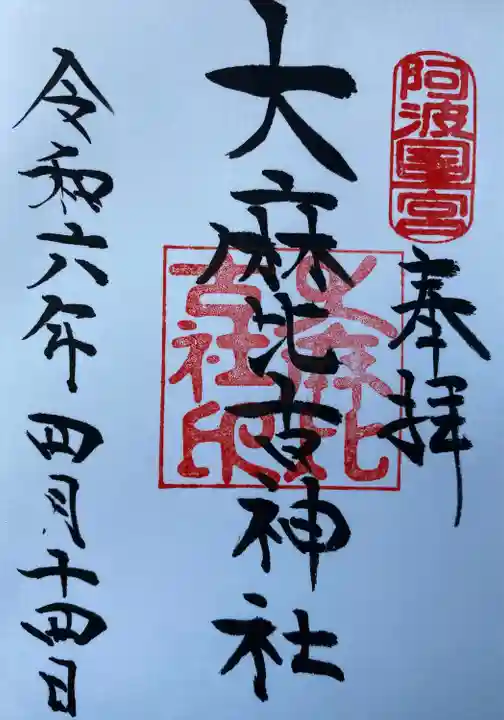 阿波国一宮
奉拝
大麻比古神社
大麻比
古社印
令和六年四月十四日